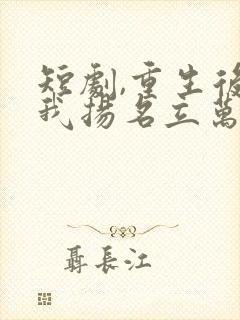 短劇,重生後
我揚名立萬
聶長江